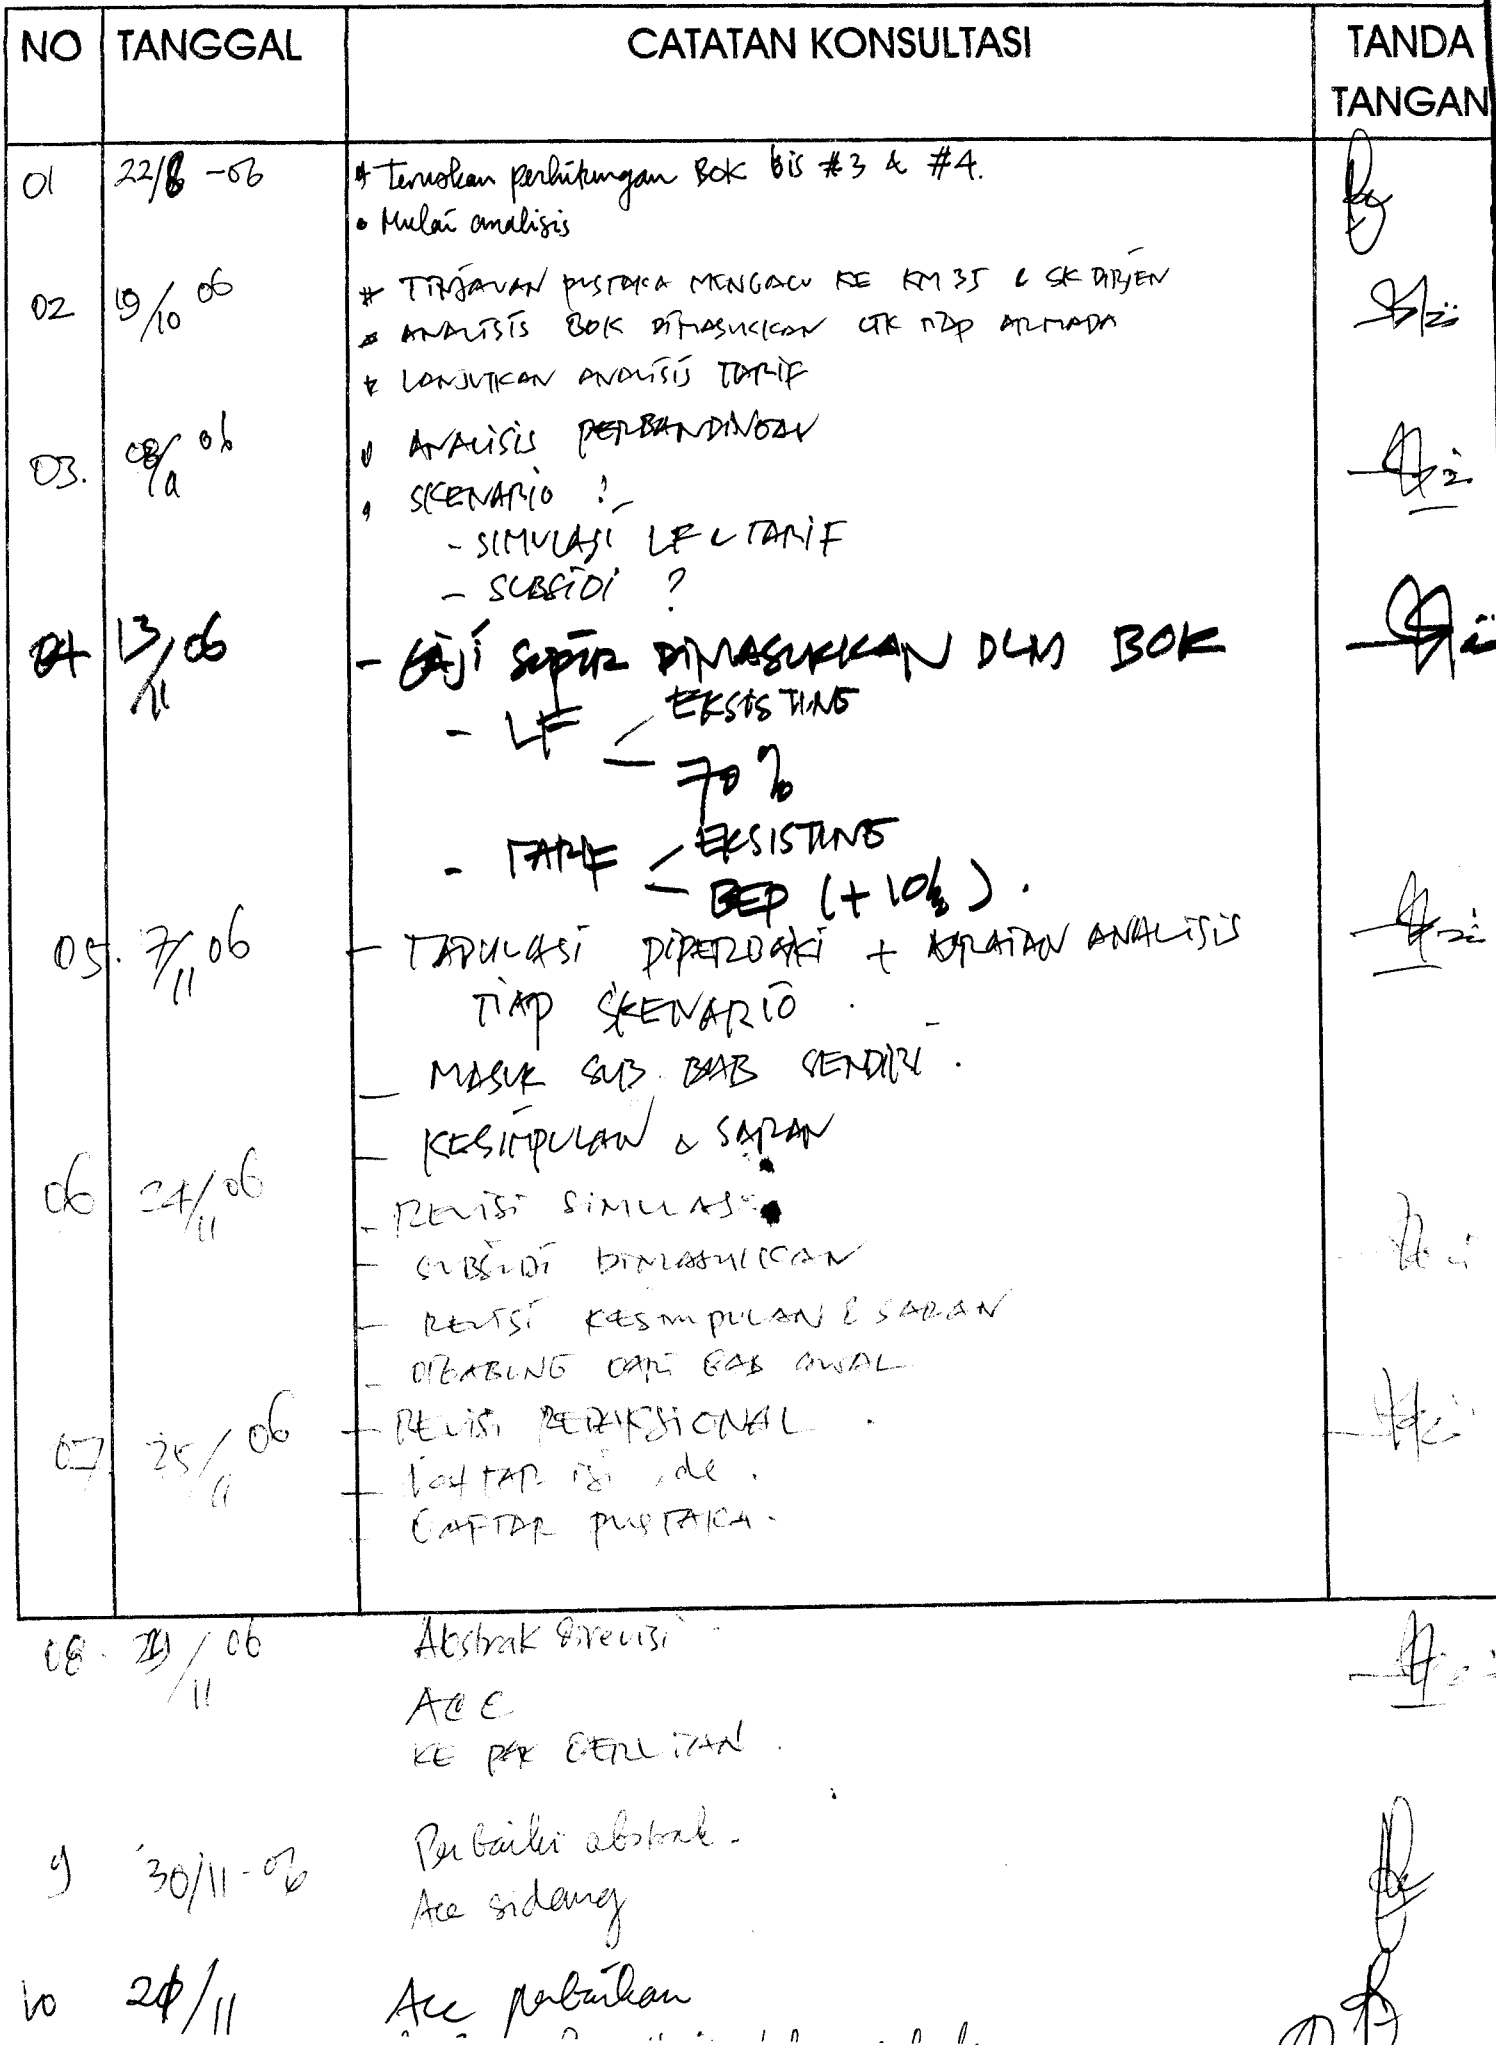 NO TANGGAL CATATAN KONSULTASI TANDA TANGAN
01 22/8 -06 * Teruskan perhitungan BOK bis #3 & #4.
• Mulai analisis
02 19/10 06 * TINJAUAN PUSTAKA MENGACU KE KM 35 & SK DIRJEN
* ANALISIS BOK DIMASUKKAN UTK TIAP ARMADA
* LANJUTKAN ANALISIS TARIF
03. 06 ANALISIS PERBANDINGAN
SKENARIO ?
- SIMULASI LF & TARIF
- SUBSIDI ?
04 13/11 06 - GAJI SUPIR DIMASUKKAN DLM BOK
- LF EKSISTING
70%
- TARIF EKSISTING
BEP (+ 10%).
05. 7/11 06 - TABULASI DIPERBAIKI + URAIAN ANALISIS
TIAP SKENARIO.
- MASUK SUB. BAB SENDIRI.
- KESIMPULAN & SARAN
06 24/11 06 - REVISI SIMULASI
- SUBSIDI DIMASUKKAN
- REVISI KESIMPULAN & SARAN
- DIGABUNG DARI BAB AWAL
07. 25/11 06 - REVISI REDAKSIONAL.
- DAFTAR ISI
- DAFTAR PUSTAKA.
08. 06 Abstrak direvisi
ACC
KE PAK
9 30/11-06 Perbaiki abstrak.
Acc sidang
10 Acc perbaikan